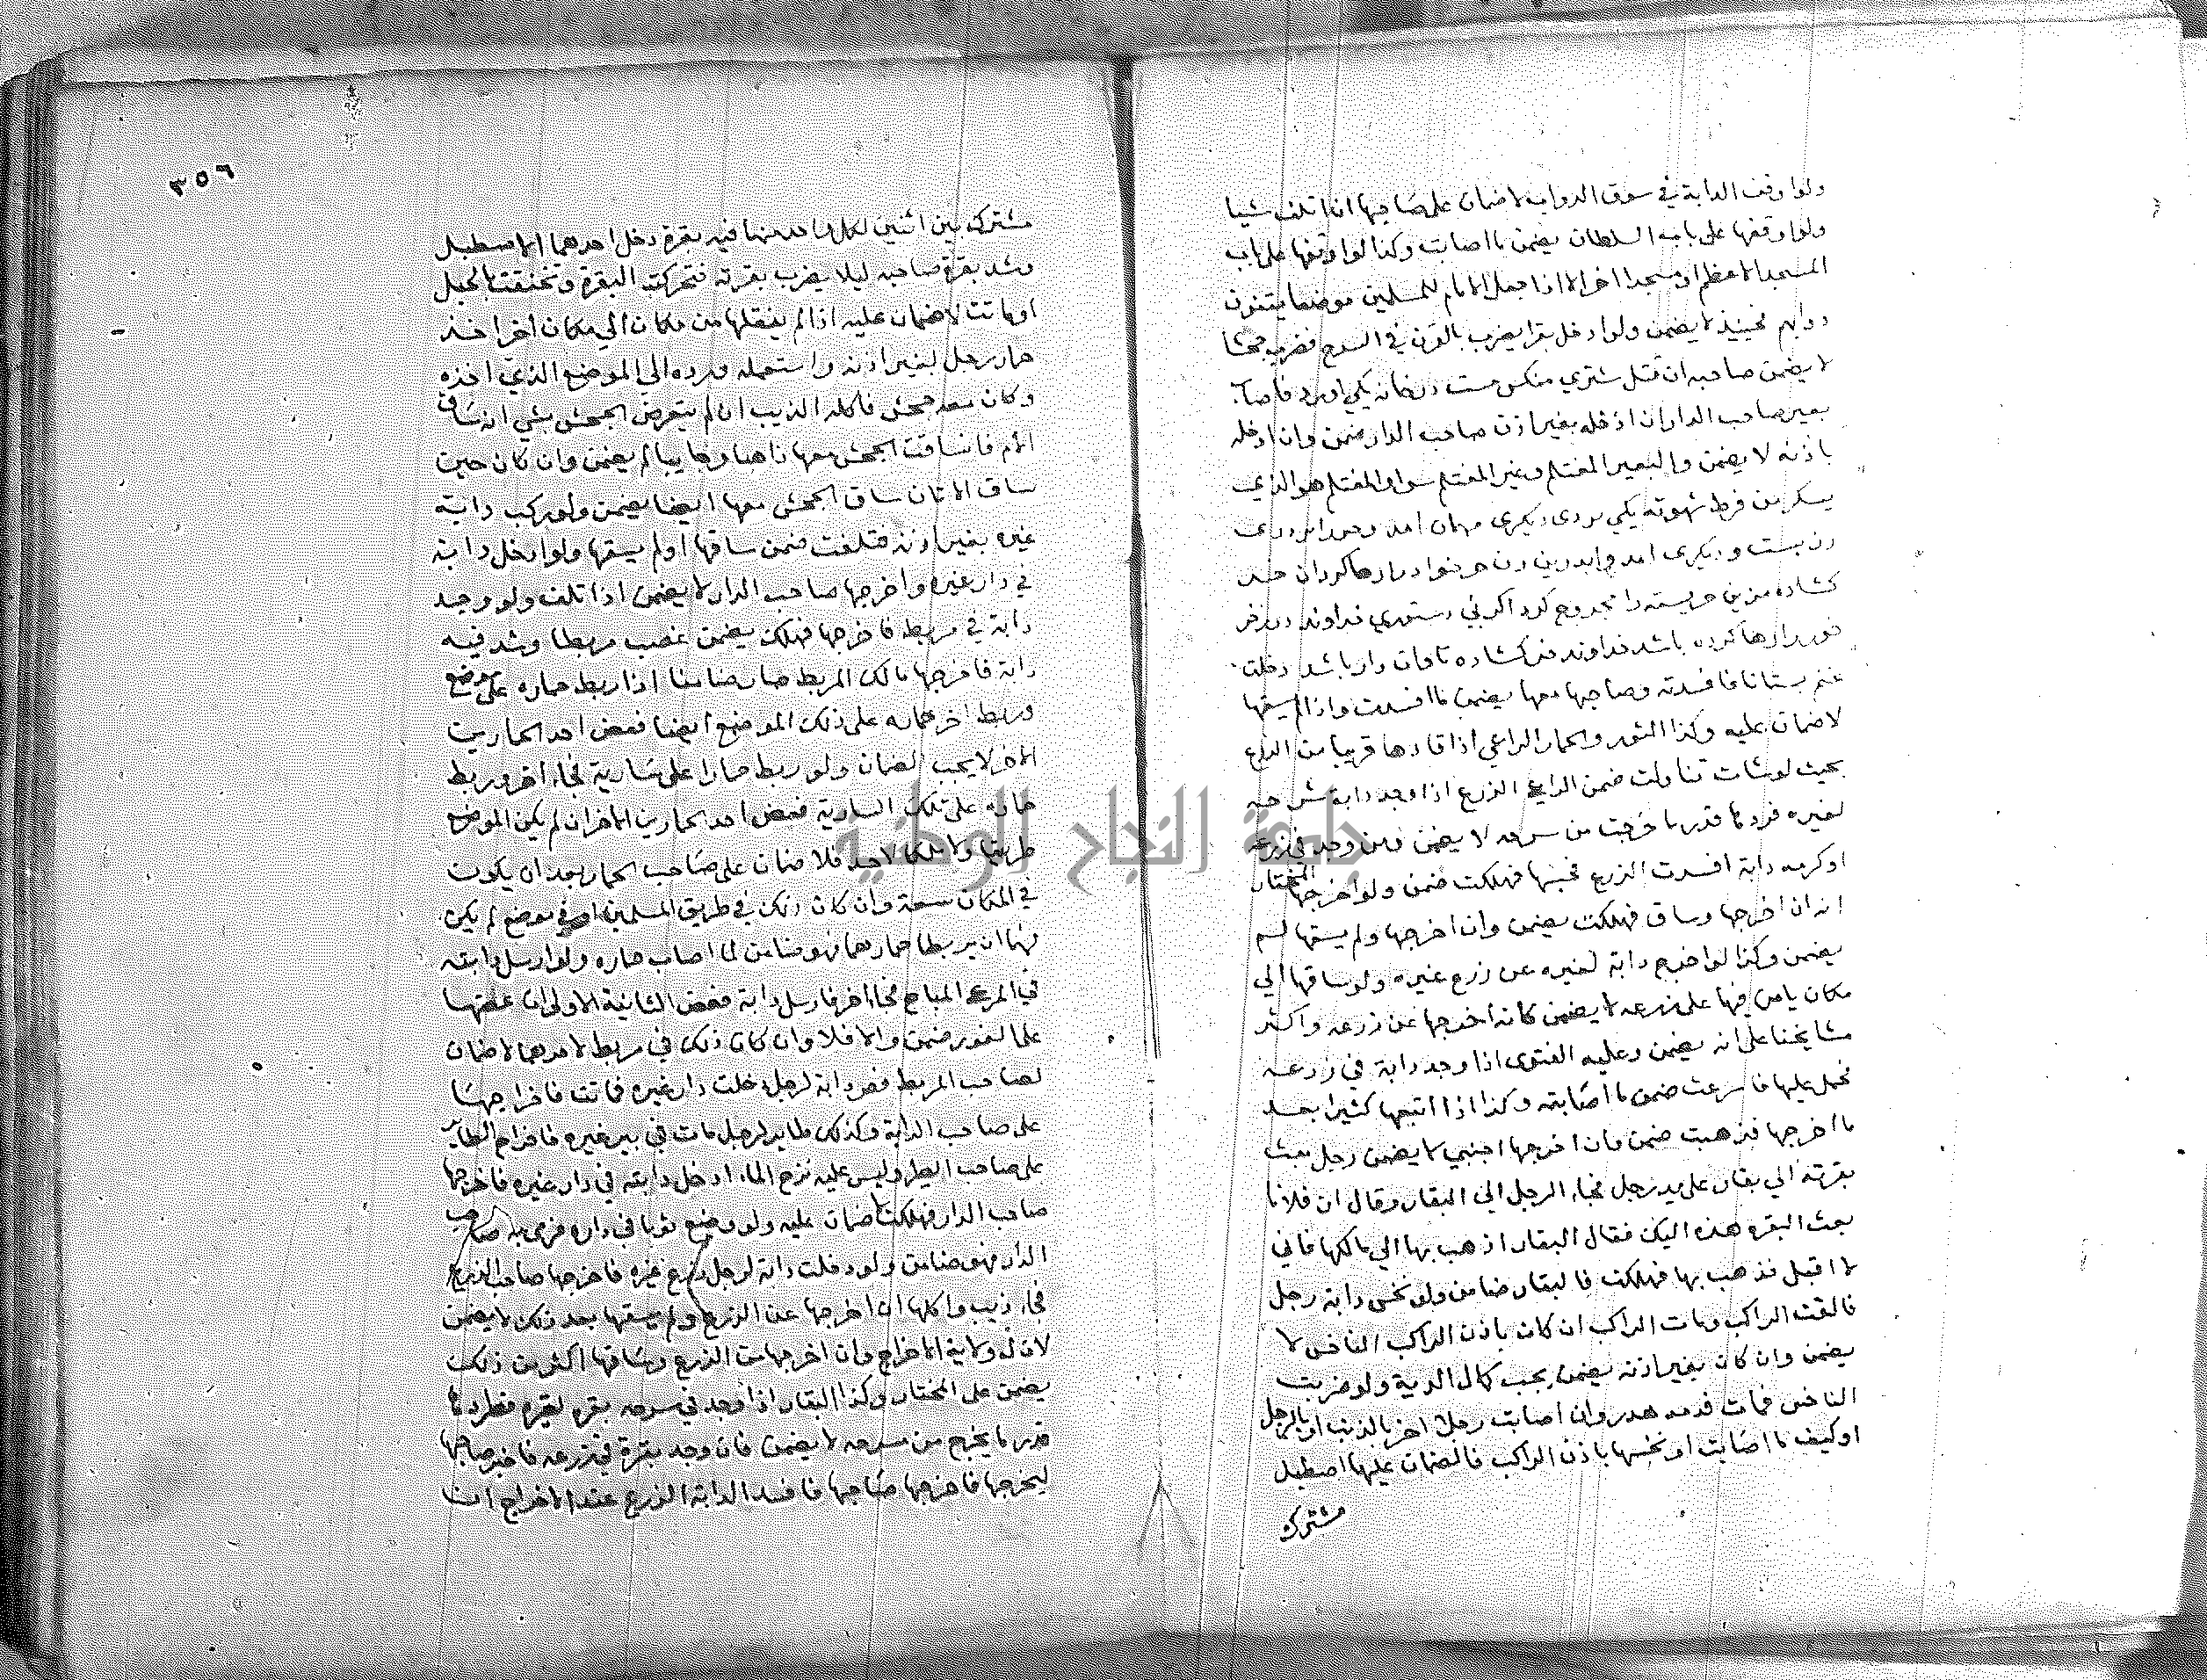 ولو اوقف الدابة في سوق الدواب لا ضمان على صاحبها اذا اتلف شيا
ولو اوقفها على باب السلطان يضمن ما اصابت وكذا لو اوقفها على باب
المسجد الاعظم او مسجد اخر الا اذا جعل الامام للمسلمين موضعا يتقفون
دوابهم فحينيذ لا يضمن ولو ادخل بقرا يضرب بالقرن في السرح فضرب جحشا
لا يضمن صاحبه ان قتل
بعير صاحب الدار ان ادخله بغير اذن صاحب الدار ضمن وان ادخله
باذنه لا يضمن والبعير المغتلم وغير المغتلم سواء والمغتلم هو الذي
يسكر من فرط شهوته يكي
كشاده
باشد خداوند خر كشاده تاوان دار باشد دخلت
غنم بستانا فافسدته وصاحبها معها يضمن ما افسدت واذا لم يسقها
لا ضمان عليه وكذا الثور والحمار الراعي اذا قادها قريبا من الزرع
بحيث لو شات تناولت ضمن الراعي الزرع اذا وجد دابة في سرحه
لغيره فردها قدر ما خرجت من سرحه لا يضمن ومن وجد في زرعه
او كرمه دابة افسدت الزرع فحبسها فهلكت ضمن ولو اخرجها المختار
انه ان اخرجها وساق فهلكت يضمن وان اخرجها ولم يسقها لم
يضمن وكذا لو اخرج دابة لغيره عن زرع غيره ولو ساقها الي
مكان يامن فيها على زرعه لا يضمن كانه اخرجها عن زرعه واكثر
مشايخنا على انه يضمن وعليه الفتوى اذا وجد دابة في زرعه
فحمل عليها فاسرعت ضمن ما اصابته وكذا اذا اتبعها كثيرا بعد
ما اخرجها فذهبت ضمن فان اخرجها اجنبي لا يضمن رجل بعث
بقرته الي بقار على يد رجل فجاء الرجل الي البقار وقال ان فلانا
بعث البقره هذه اليك فقال البقار اذهب بها الي مالكها فاني
لا اقبل فذهب بها فهلكت فالبقار ضامن ولو نخس دابة رجل
فالقت الراكب ومات الراكب ان كان باذن الراكب الناخس لا
يضمن وان كان بغير اذنه يضمن يجب كمال الدية ولو ضربت
الناخس فمات فدمه هدر وان اصابت رجلا اخر بالذنب او بالرجل
او كيف ما اصابت او نخسها باذن الراكب فالضمان عليهما اصطبل
مشترك
٣٥٦
مشترك بين اثنين لكل واحد منهما فيه بقرة دخل احدهما الاصطبل
وشد بقرة صاحبه ليلا يضرب بقرته فتحركت البقرة وتخنقت بالحبل
او ماتت لا ضمان عليه اذا لم ينقلها من مكان الي مكان اخر اخذ
حمار رجل بغير اذنه واستعمله ورده الي الموضع الذي اخذه
وكان معه جحش فاكله الذيب ان لم يتعرض الجحش بشي انه ساق
الام فانساقت الجحش معها ذاهبا وجايبا لم يضمن وان كان حين
ساق الاتان ساق الجحش معها ايضا يضمن ولو ركب دابة
غيره بغير اذنه فتلفت ضمن ساقها او لم يسقها ولو ادخل دابته
في دار غيره واخرجها صاحب الدار لا يضمن اذا تلف ولو وجد
دابة في مربطه فاخرجها فهلكت يضمن غصب مربطا وشد فيه
دابة فاخرجها مالك المربط صار ضامنا اذا ربط حماره على موضع
وربط اخر حماره على ذلك الموضع ايضا فعض احد الحمارين
الاخر لا يجب الضمان ولو ربط حمارا على سارية فجاء اخر وربط
حماره على تلك السارية فعض احد الحمارين الاخر ان لم يكن الموضع
طريقا ولا ملكا لاحد فلا ضمان على صاحب الحمار بعد ان يكون
في المكان سعة وان كان ذلك في طريق المسلمين او في موضع لم يكن
لهما ان يربطا حمارهما فهو ضامن لما اصاب حماره ولو ارسل دابته
في المرعى المباح فجاء اخر فارسل دابة فعض الثانية الاولى ان عضها
على الفور ضمن والا فلا وان كان ذلك في مربط لاحدهما لا ضمان
لصاحب المربط دابة لرجل دخلت دار غيره فماتت فاخراجها
على صاحب الدابة وكذلك طاير لرجل مات في بير غيره فاخراج الطاير
على صاحب الطير وليس عليه نزح الماء ادخل دابته في دار غيره فاخرجها
صاحب الدار فهلكت لا ضمان عليه ولو وضع ثوبا في داره فرمى به صاحب
الدار فهو ضامن ولو دخلت دابة لرجل زرع غيره فاخرجها صاحب الزرع
فجاء ذيب واكلها ان اخرجها عن الزرع ولم يسقها بعد ذلك لا يضمن
لان له ولاية الاخراج وان اخرجها من الزرع وساقها اكثر من ذلك
يضمن على المختار وكذا البقار اذا وجد في سرحه بقره لغيره فطردها
قدر ما يخرج من سرحه لا يضمن فان وجد بقرة في زرعه فاخبر صاحبها
ليخرجها فاخرجها صاحبها فافسد الدابة الزرع عند الاخراج ان
جامعة النجاح الوطنية